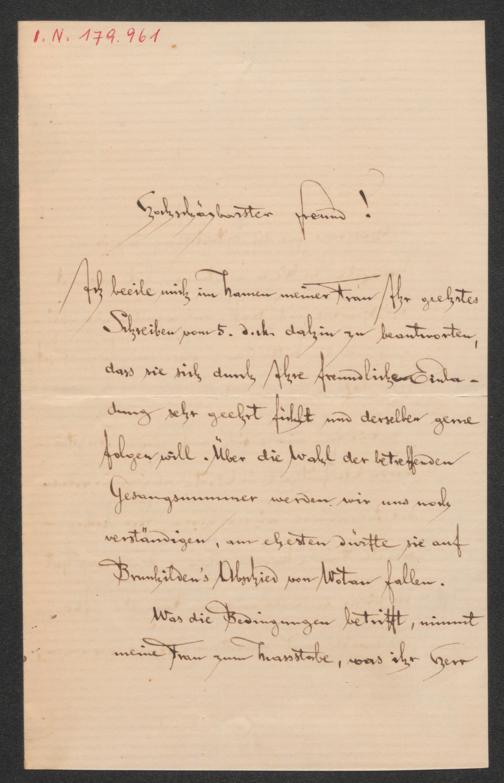 I. N. 179.961
Hochschätzbarster Freund!
Ich beeile mich im Namen meiner Frau Ihr geehrtes
Schreiben vom 5. d. M. dahin zu beantworten,
dass sie sich durch Ihre freundliche Einla-
dung sehr geehrt fühlt und derselben gerne
folgen will. Über die Wahl der betreffenden
Gesangsnummer werden wir uns noch
verständigen, am ehesten dürfte sie auf
Brunhilden's Abschied von Wotan fallen.
Was die Bedingungen betrifft, nimmt
meine Frau zum Massstabe, was ihr Herr